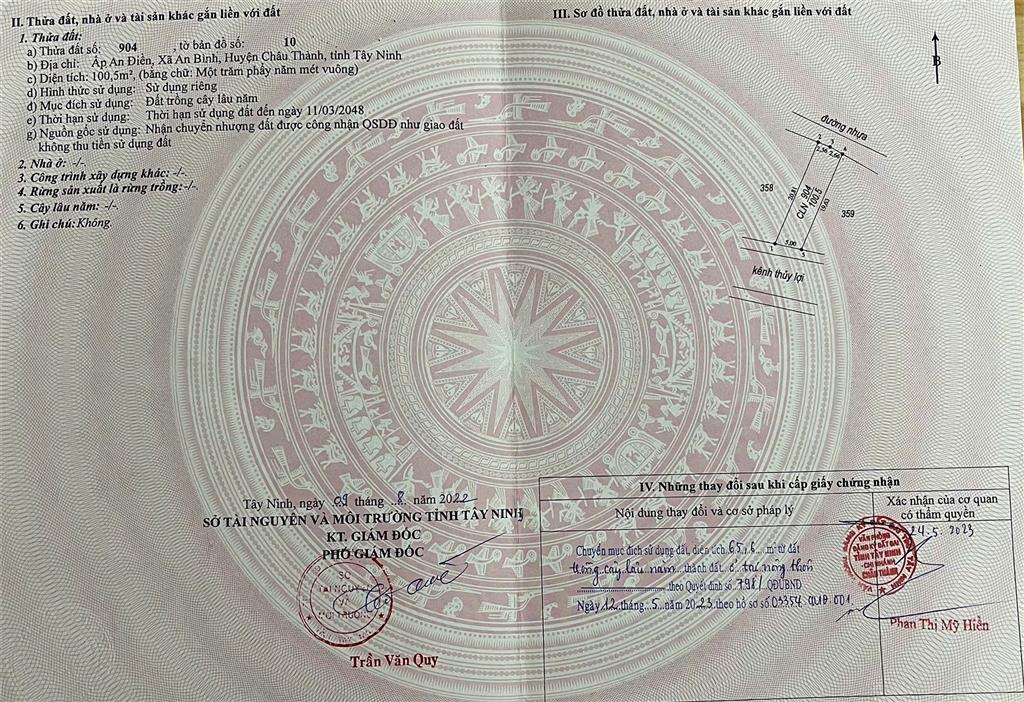 II. Thửa đất, nhà ở và tài sản khác gắn liền với đất
1. Thửa đất:
a) Thửa đất số: 904 , tờ bản đồ số: 10
b) Địa chỉ: Ấp An Điền, Xã An Bình, Huyện Châu Thành, tỉnh Tây Ninh
c) Diện tích: 100,5m², (bằng chữ: Một trăm phẩy năm mét vuông)
d) Hình thức sử dụng: Sử dụng riêng
đ) Mục đích sử dụng: Đất trồng cây lâu năm
e) Thời hạn sử dụng: Thời hạn sử dụng đất đến ngày 11/03/2048
g) Nguồn gốc sử dụng: Nhận chuyển nhượng đất được công nhận QSDĐ như giao đất
không thu tiền sử dụng đất
2. Nhà ở: -/-.
3. Công trình xây dựng khác: -/-.
4. Rừng sản xuất là rừng trồng:-/-.
5. Cây lâu năm: -/-.
6. Ghi chú: Không.
Tây Ninh, ngày 09 tháng 8 năm 2022
SỞ TÀI NGUYÊN VÀ MÔI TRƯỜNG TỈNH TÂY NINH
KT. GIÁM ĐỐC
PHÓ GIÁM ĐỐC
SỞ
TÀI NGUYÊN
VÀ
MÔI TRƯỜNG
Trần Văn Quy
III. Sơ đồ thửa đất, nhà ở và tài sản khác gắn liền với đất
B
đường nhựa
2 3 4
2,56 2,66
358
20,81
CLN 904
100,5
19,63
359
1 5,00 5
kênh thủy lợi
IV. Những thay đổi sau khi cấp giấy chứng nhận
Nội dung thay đổi và cơ sở pháp lý
Xác nhận của cơ quan
có thẩm quyền
Chuyển mục đích sử dụng đất, diện tích 65,6 m² từ đất
trồng cây lâu năm thành đất ở tại nông thôn
theo Quyết định số 798/ QĐUBND
Ngày 12 tháng 5 năm 2023 theo hồ sơ số 03354.CMĐ.001
24-5-2023
VĂN PHÒNG
ĐĂNG KÝ ĐẤT ĐAI
TỈNH TÂY NINH
-CHI NHÁNH
CHÂU THÀNH
Phan Thị Mỹ Hiền